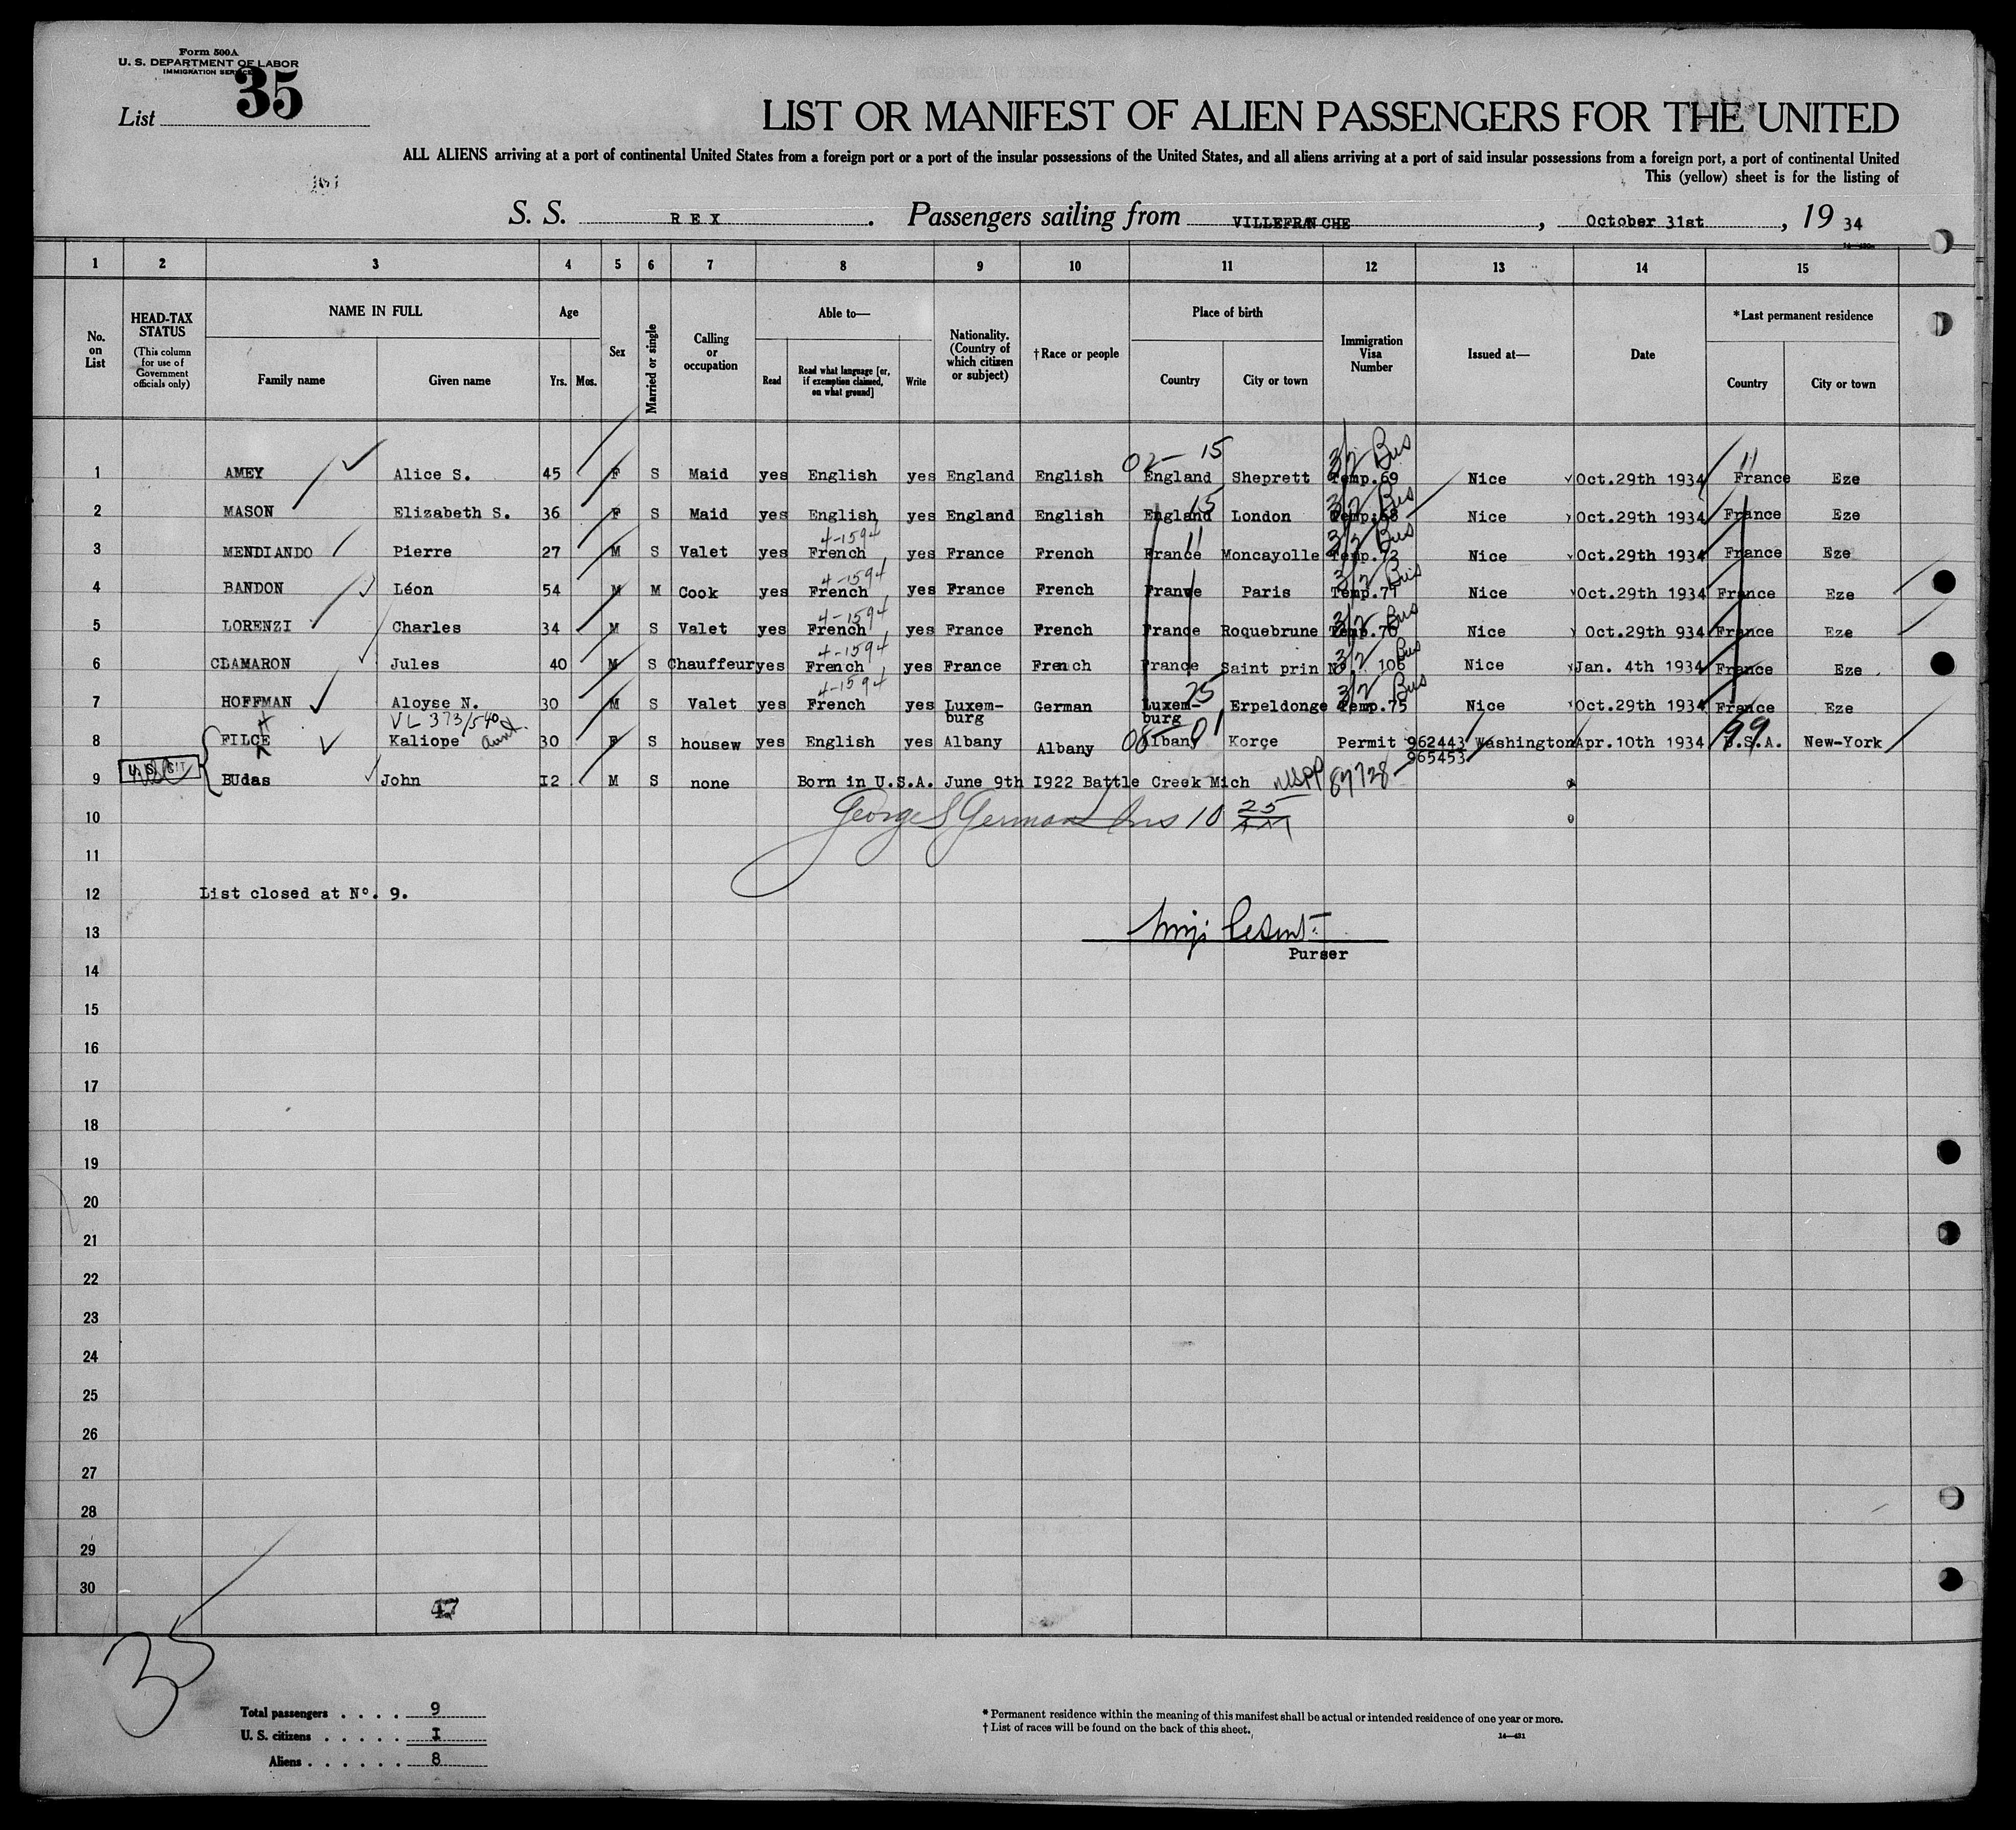 Form 500A
U. S. DEPARTMENT OF LABOR
IMMIGRATION SERVICE
List 35
LIST OR MANIFEST OF ALIEN PASSENGERS FOR THE UNITED
ALL ALIENS arriving at a port of continental United States from a foreign port or a port of the insular possessions of the United States, and all aliens arriving at a port of said insular possessions from a foreign port, a port of continental United
This (yellow) sheet is for the listing of
S. S. REX. Passengers sailing from VILLEFRANCHE, October 31st, 19 34
1 2 3 4 5 6 7 8 9 10 11 12 13 14 15
No. on List
HEAD-TAX STATUS (This column for use of Government officials only)
NAME IN FULL
Family name Given name
Age
Yrs. Mos.
Sex
Married or single
Calling or occupation
Able to—
Read Read what language [or, if exemption claimed, on what ground] Write
Nationality. (Country of which citizen or subject)
†Race or people
Place of birth
Country City or town
Immigration Visa Number
Issued at—
Date
*Last permanent residence
Country City or town
02- 15 3/2 Bus 11
1 AMEY Alice S. 45 F S Maid yes English yes England English England Sheprett Temp.69 Nice Oct.29th 1934 France Eze
15 3/2 Bus
2 MASON Elizabeth S. 36 F S Maid yes English yes England English England London Temp.68 Nice Oct.29th 1934 France Eze
4-1594 11 3/2 Bus
3 MENDIANDO Pierre 27 M S Valet yes French yes France French France Moncayolle Temp.72 Nice Oct.29th 1934 France Eze
4-1594 3/2 Bus
4 BANDON Léon 54 M M Cook yes French yes France French France Paris Temp.71 Nice Oct.29th 1934 France Eze
4-1594 3/2 Bus
5 LORENZI Charles 34 M S Valet yes French yes France French France Roquebrune Temp.70 Nice Oct.29th 934 France Eze
4-1594 3/2 Bus
6 CLAMARON Jules 40 M S Chauffeur yes French yes France French France Saint prin No. 106 Nice Jan. 4th 1934 France Eze
4-1594 25 3/2 Bus
7 HOFFMAN Aloyse N. 30 M S Valet yes French yes Luxemburg German Luxemburg Erpeldonge Temp.75 Nice Oct.29th 1934 France Eze
VL 373/540 aunt
8 FILCE Kaliope 30 F S housew yes English yes Albany Albany 08- 01 Albany Korçe Permit 962443 Washington Apr.10th 1934 99 U.S.A. New-York
965453
9 U.S. BUdas John I2 M S none Born in U.S.A. June 9th I922 Battle Creek Mich USPP 87728
10 George S German Ins 10 25
11
12 List closed at Nº. 9.
13
Purser
14
15
16
17
18
19
20
21
22
23
24
25
26
27
28
29
30
47
35
Total passengers . . . . 9
U. S. citizens . . . . . I
Aliens . . . . . . 8
* Permanent residence within the meaning of this manifest shall be actual or intended residence of one year or more.
† List of races will be found on the back of this sheet.
14—431